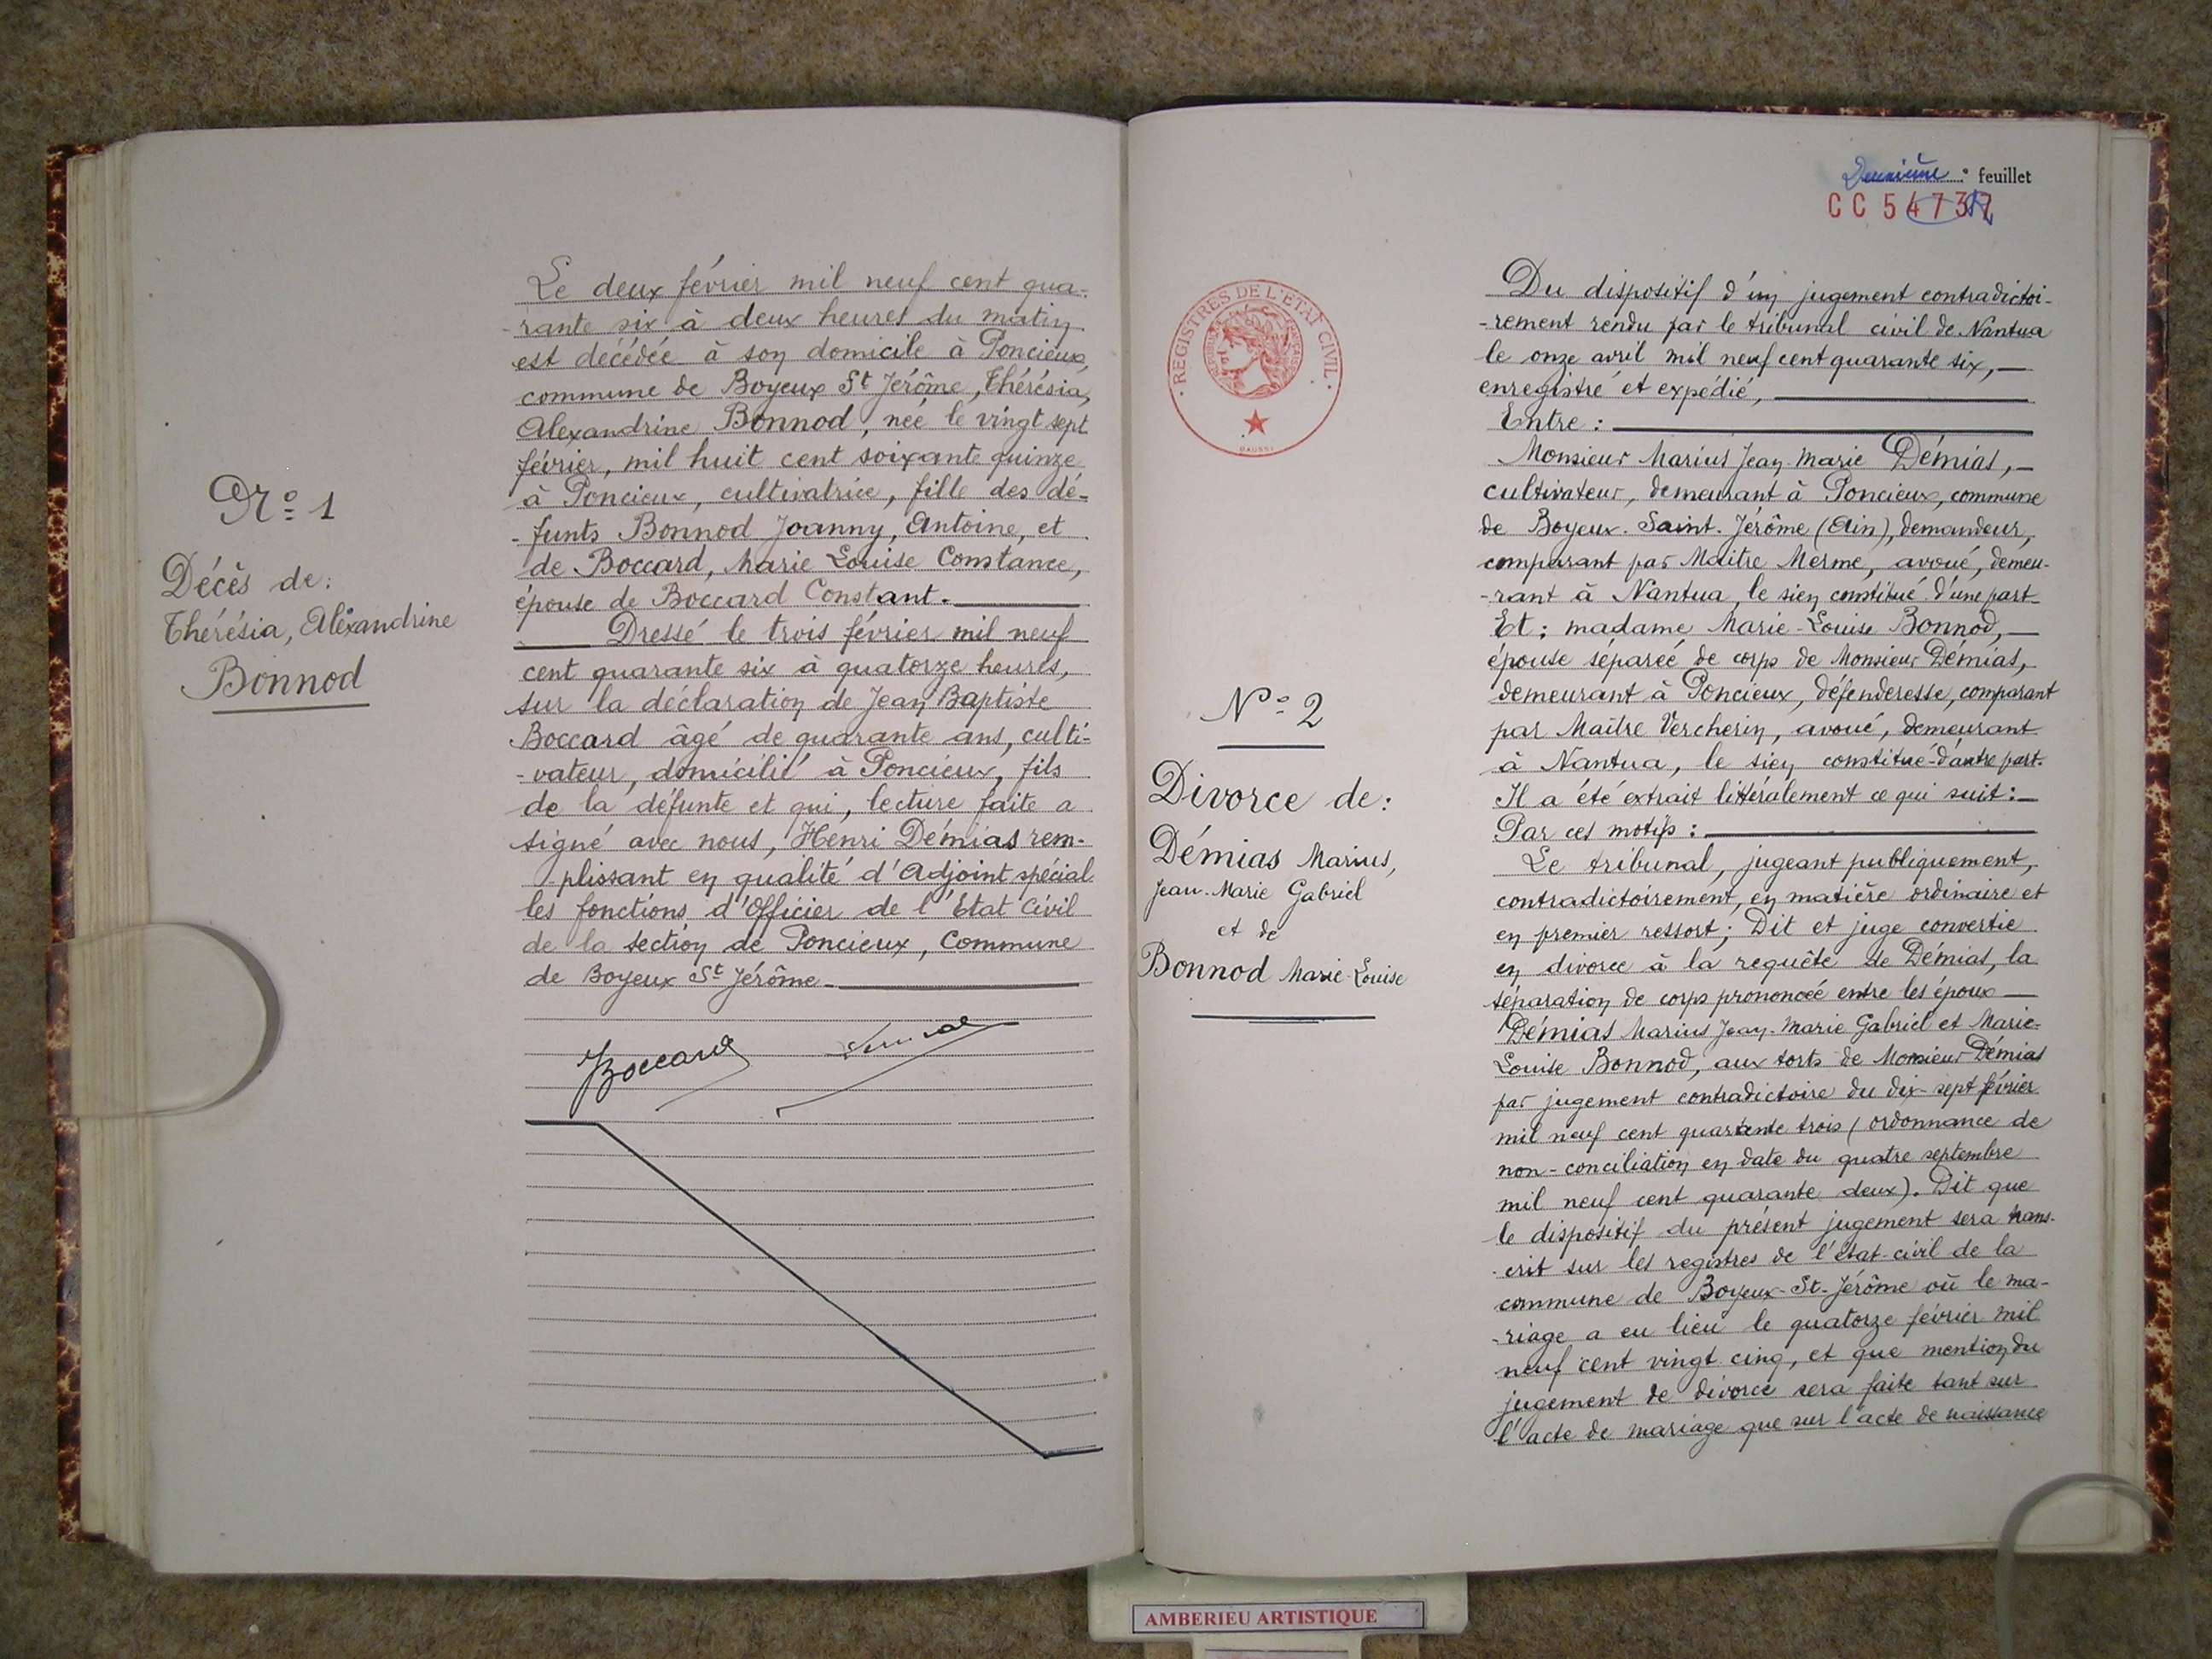 N° 1
Décès de:
Thérésia, Aléxandrine
Bonnod
Le deux février mil neuf cent qua-
-rante six à deux heures du matin
est décédée à son domicile à Poncieux,
commune de Boyeux St Jérôme, Thérésia,
Alexandrine Bonnod, née le vingt sept
février, mil huit cent soixante quinze
à Poncieux, cultivatrice, fille des dé-
-funts Bonnod Joanny, Antoine, et
de Boccard, Marie Louise Constance,
épouse de Boccard Constant.
Dressé le trois février mil neuf
cent quarante six à quatorze heures,
sur la déclaration de Jean Baptiste
Boccard âgé de quarante ans, culti-
-vateur, domicilié à Poncieux, fils
de la défunte et qui, lecture faite a
signé avec nous, Henri Démias rem-
plissant en qualité d'Adjoint spécial
les fonctions d'Officier de l'Etat Civil
de la section de Poncieux, Commune
de Boyeux St Jérôme.
JBoccard
Deuxième feuillet
CC 54737
REGISTRES DE L'ETAT CIVIL
N° 2
Divorce de:
Démias Marius,
Jean-Marie Gabriel
et de
Bonnod Marie-Louise
Du dispositif d'un jugement contradictoi-
-rement rendu par le tribunal civil de Nantua
le onze avril mil neuf cent quarante six,
enregistré et expédié,
Entre:
Monsieur Marius Jean-Marie Démias,
cultivateur, demeurant à Poncieux, commune
de Boyeux-Saint-Jérôme (Ain), demandeur,
comparant par Maître Merme, avoué, demeu-
-rant à Nantua, le sien constitué d'une part
Et: madame Marie-Louise Bonnod,
épouse séparée de corps de Monsieur Démias,
demeurant à Poncieux, défenderesse, comparant
par Maître Vercherin, avoué, demeurant
à Nantua, le sien constitué d'autre part.
Il a été extrait littéralement ce qui suit:
Par ces motifs:
Le tribunal, jugeant publiquement,
contradictoirement, en matière ordinaire et
en premier ressort; Dit et juge convertie
en divorce à la requête de Démias, la
séparation de corps prononcée entre les époux
Démias Marius Jean-Marie Gabriel et Marie-
Louise Bonnod, aux torts de Monsieur Démias
par jugement contradictoire du dix-sept février
mil neuf cent quarante trois (ordonnance de
non-conciliation en date du quatre septembre
mil neuf cent quarante deux). Dit que
le dispositif du présent jugement sera trans-
-crit sur les registres de l'état-civil de la
commune de Boyeux-St-Jérôme où le ma-
-riage a eu lieu le quatorze février mil
neuf cent vingt cinq, et que mention du
jugement de divorce sera faite tant sur
l'acte de mariage que sur l'acte de naissance
AMBERIEU ARTISTIQUE